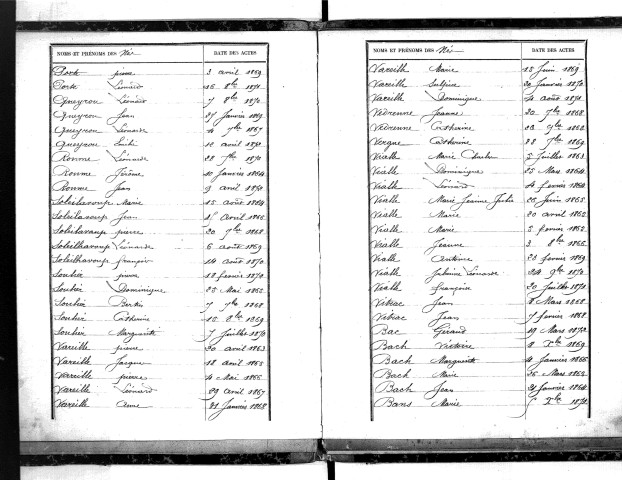 NOMS ET PRÉNOMS DES Nés DATE DES ACTES
Porte pierre 3 avril 1869
Porte Léonard 16 8bre 1871
Queyrou Léonard 7 8bre 1870
Queyrou Jean 27 Janvier 1869
Queyrou Léonarde 4 7bre 1867
Queyrou 10 avril
Ronme Léonarde 28 7bre 1870
Ronme Jérôme 10 Janvier 1864
Ronme Jean 9 avril 1870
Soleilhavoup Marie 15 août 1864
Soleilhavoup Jean avril 1866
Soleilhavoup pierre 30 7bre 1868
Soleilhavoup Léonarde 6 août 1869
Soleilhavoup françois 14 août 1870
Soulier pierre 12 février 1870
Soulier Dominique 23 Mai 1862
Soulier 7bre 1868
Soulier Catherine 15 8bre 1869
Soulier Marguerite 7 Juillet 1870
Vareille pierre 30 avril 1863
Vareille Jacque 18 août 1865
Vareille pierre 4 Mai 1866
Vareille Léonard 29 avril 1867
Vareille Anne 31 Janvier 1868
NOMS ET PRÉNOMS DES Nés DATE DES ACTES
Vareille Marie 13 Juin 1869
Vareille Sulpice 30 Janvier 1870
Vareille Dominique 4 août 1871
Vedrenne Jeanne 30 7bre 1868
Vedrenne Catherine 1862
Vergne Catherine 28 7bre 1869
Vialle Marie 5 Juillet 1863
Vialle Dominique 25 Mars 1864
Vialle Léonard 4 février 1864
Vialle Marie Jeanne Julie 26 Juin 1865
Vialle Marie 20 avril 1862
Vialle Marie 5 février 1862
Vialle Jeanne 3 8bre 1866
Vialle Antoine 23 février 1869
Vialle Léonarde 24 9bre 1870
Vialle françoise 20 Juillet 1871
Vibrac Jean 8 Mars 1868
Vibrac Jean 7 février 1868
Bac Géraud 19 Mars 1872
Bach Victoire 8 Xbre 1869
Bach Marguerite 4 Janvier 1866
Bach Marie 26 Mars 1863
Bach Jean 31 Janvier 1864
Bans Marie 6 Xbre 1871